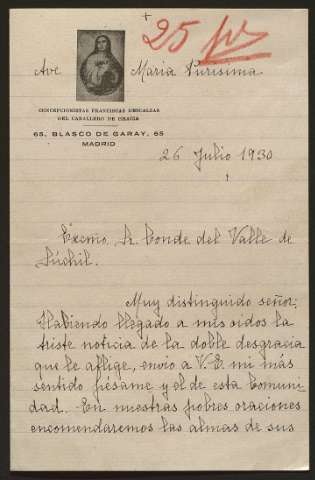 +
25 pts
Ave María Purísima
CONCEPCIONISTAS FRANCISCAS DESCALZAS
DEL CABALLERO DE GRACIA
65, BLASCO DE GARAY, 65
MADRID
26 Julio 1930
Excmo. Sr. Conde del Valle de
Súchil.
Muy distinguido señor:
Habiendo llegado a mis oidos la
triste noticia de la doble desgracia
que le aflige, envio a V. E. mi más
sentido pésame y el de esta Comuni
dad. En nuestras pobres oraciones
encomendaremos las almas de sus